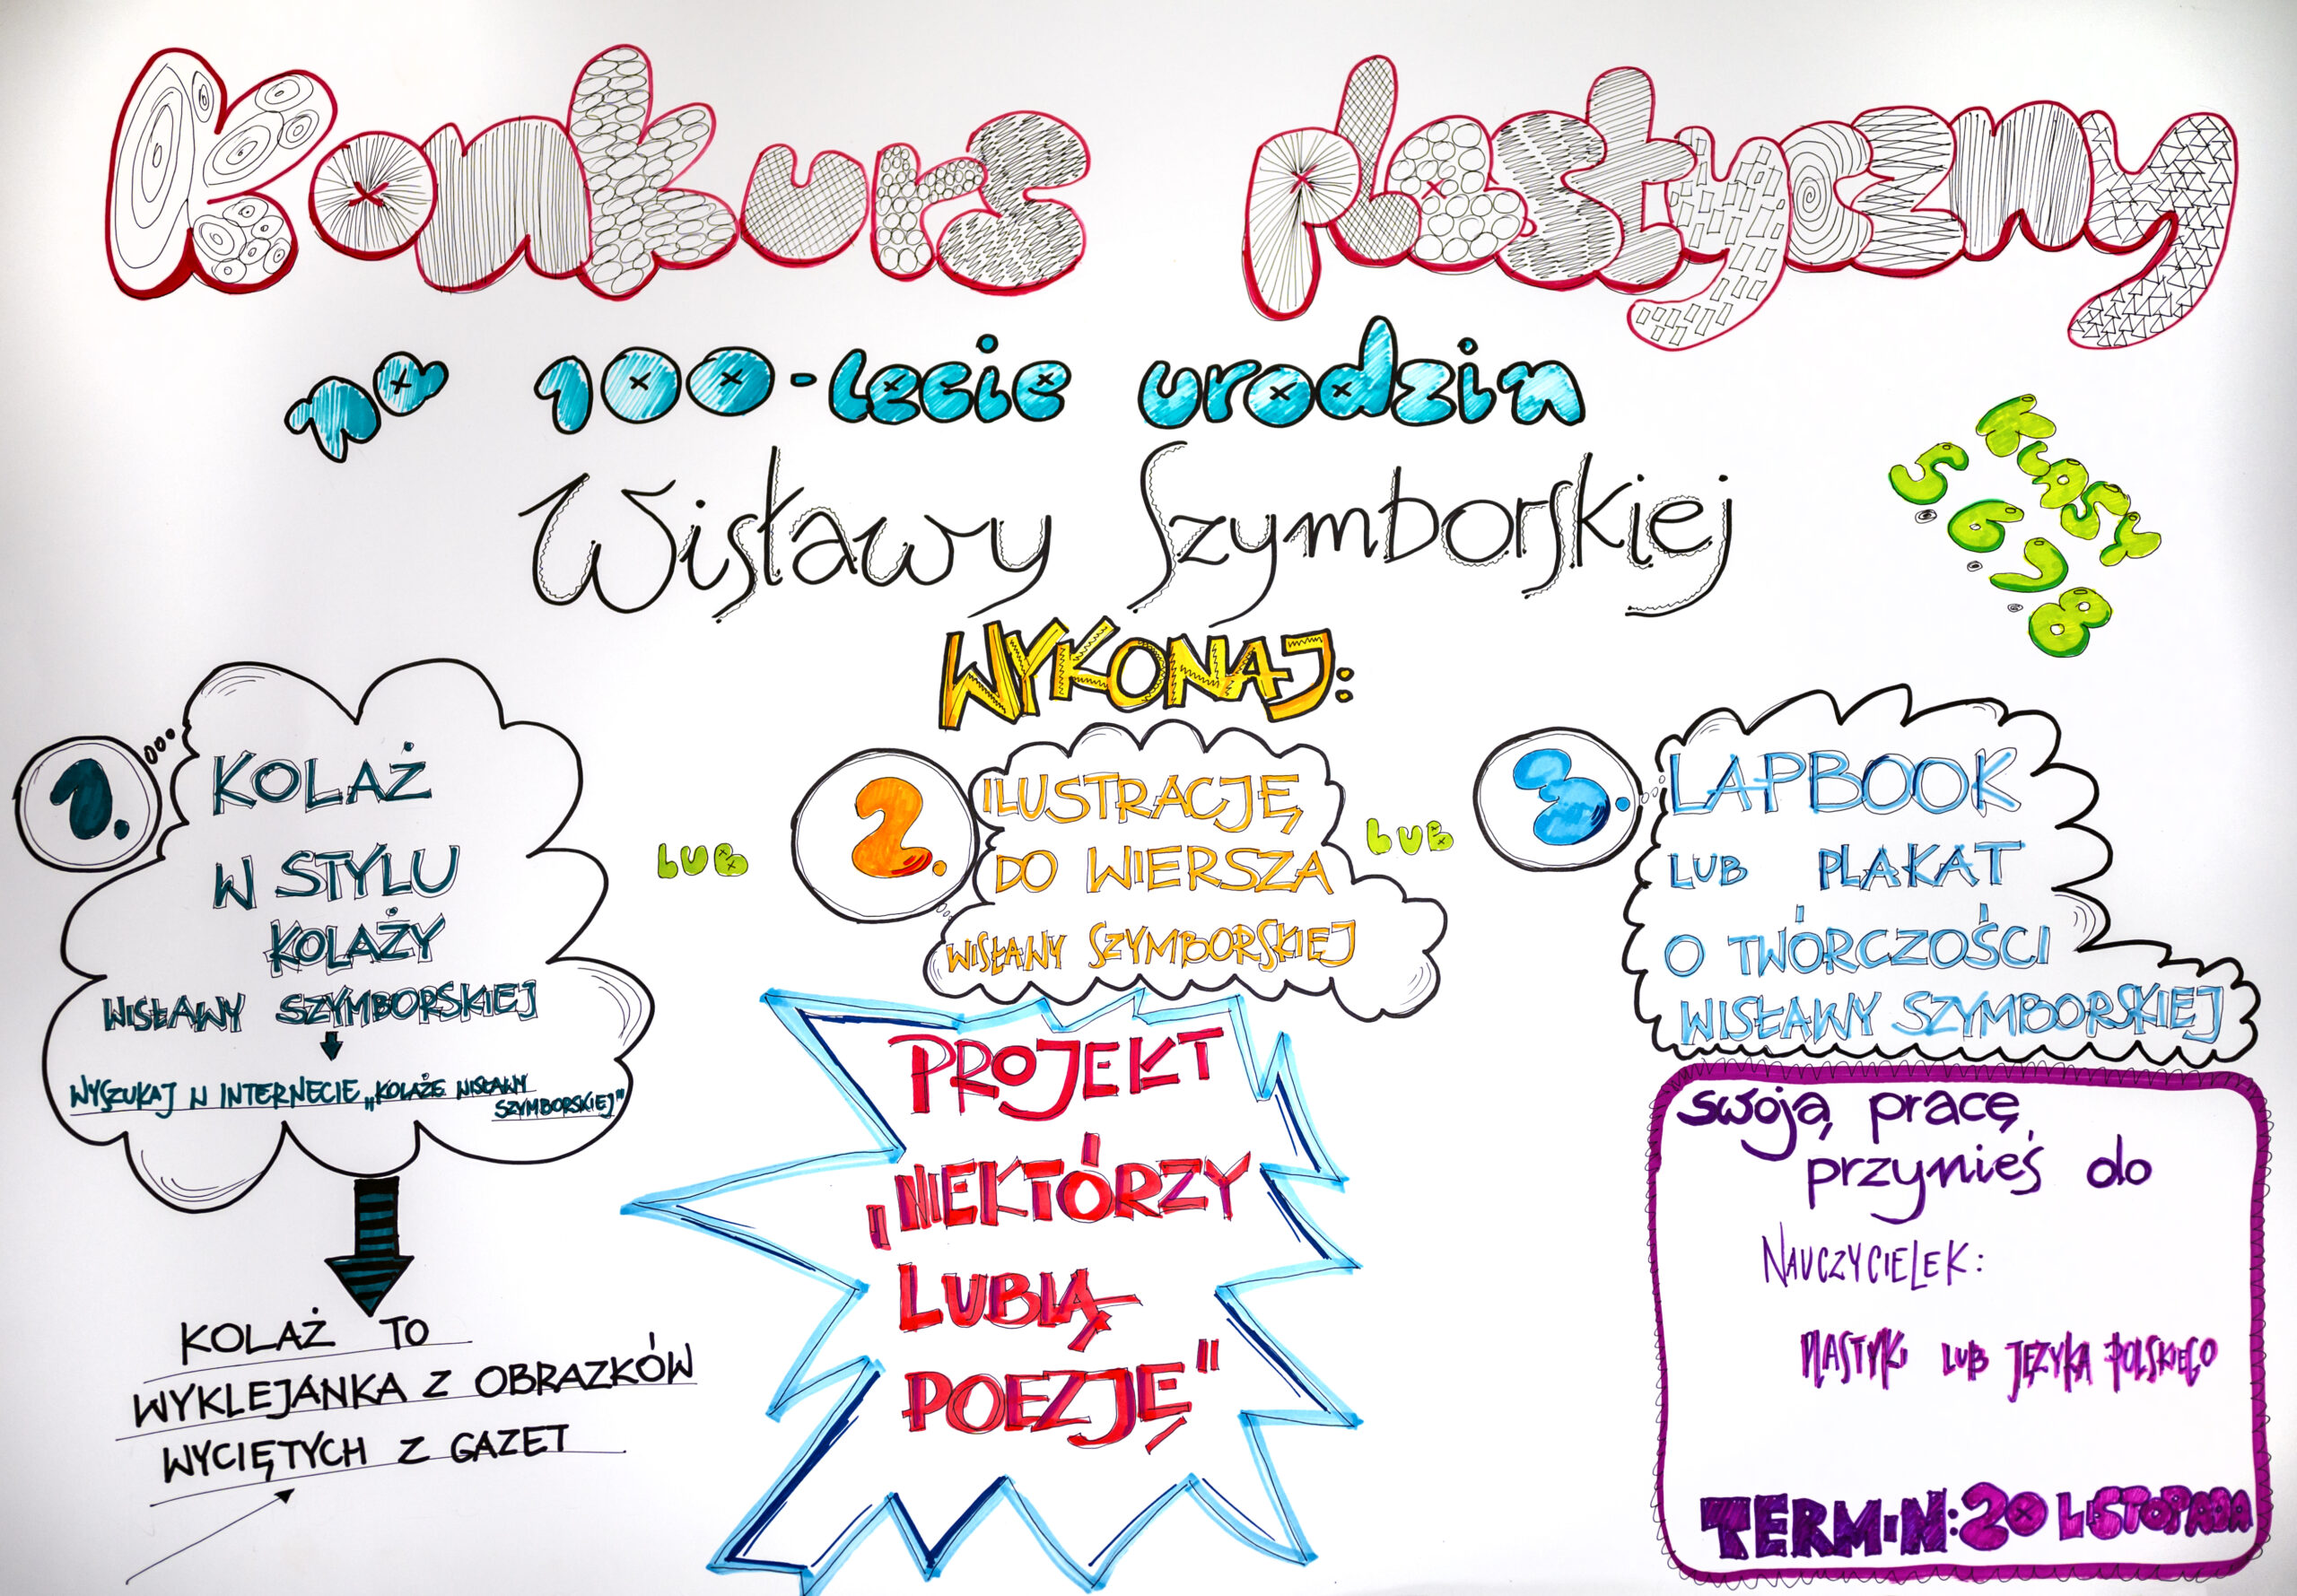 Konkurs plastyczny
na 100-lecie urodzin
Wisławy Szymborskiej
Klasy
5.6.7.8
WYKONAJ:
1.
KOLAŻ
W STYLU
KOLAŻY
WISŁAWY SZYMBORSKIEJ
WYSZUKAJ W INTERNECIE „KOLAŻE WISŁAWY
SZYMBORSKIEJ"
KOLAŻ TO
WYKLEJANKA Z OBRAZKÓW
WYCIĘTYCH Z GAZET
LUB
2.
ILUSTRACJĘ
DO WIERSZA
WISŁAWY SZYMBORSKIEJ
LUB
3.
LAPBOOK
LUB PLAKAT
O TWÓRCZOŚCI
WISŁAWY SZYMBORSKIEJ
PROJEKT
„NIEKTÓRZY
LUBIĄ
POEZJĘ"
swoją pracę
przynieś do
NAUCZYCIELEK:
PLASTYKI LUB JĘZYKA POLSKIEGO
TERMIN: 20 LISTOPADA